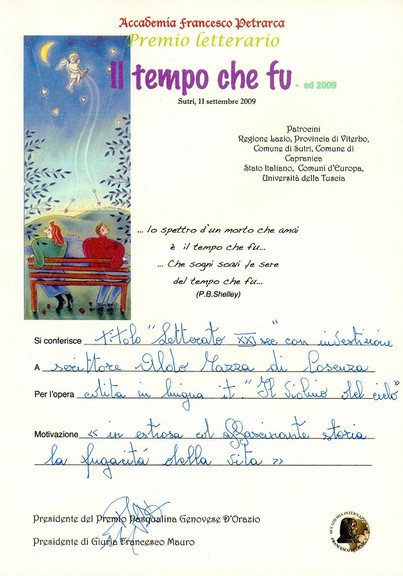 Accademia Francesco Petrarca
Premio letterario
Il tempo che fu - ed 2009
Sutri, 11 settembre 2009
Patrocini
Regione Lazio, Provincia di Viterbo,
Comune di Sutri, Comune di
Capranica
Stato Italiano, Comuni d'Europa,
Università della Tuscia
... lo spettro d'un morto che amai
è il tempo che fu...
... Che sogni soavi le sere
del tempo che fu...
(P.B.Shelley)
Si conferisce titolo "Letterato XXI sec" con investizione
A scrittore Aldo Mazza di Cosenza
Per l'opera edita in lingua it "Il Violino del cielo"
Motivazione « in estrosa ed affascinante storia
la fugacità della vita »
Presidente del Premio Pasqualina Genovese D'Orazio
Presidente di Giuria Francesco Mauro